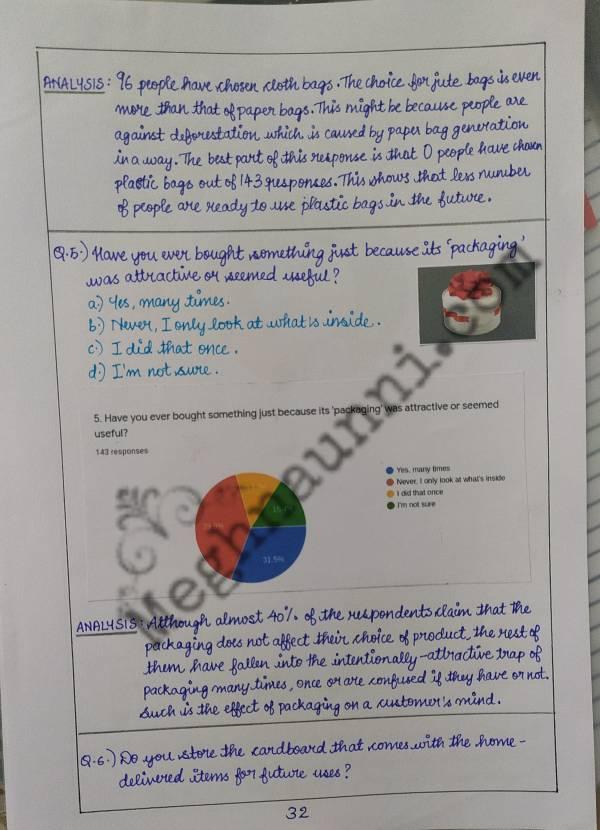 ANALYSIS: 96 people have chosen cloth bags. The choice for jute bags is even
more than that of paper bags. This might be because people are
against deforestation which is caused by paper bag generation
in a way. The best part of this response is that 0 people have chosen
plastic bags out of 143 responses. This shows that less number
of people are ready to use plastic bags in the future.
Q.5.) Have you ever bought something just because its 'packaging'
was attractive or seemed useful?
a.) Yes, many times.
b.) Never, I only look at what is inside.
c.) I did that once.
d.) I'm not sure.
5. Have you ever bought something just because its 'packaging' was attractive or seemed
useful?
143 responses
Yes, many times
Never, I only look at what's inside
I did that once
I'm not sure
31.5%
Meghmaunni.com
ANALYSIS: Although almost 40% of the respondents claim that the
packaging does not affect their choice of product, the rest of
them have fallen into the intentionally-attractive trap of
packaging many times, once or are confused if they have or not.
Such is the effect of packaging on a customer's mind.
Q.6.) Do you store the cardboard that comes with the home-
delivered items for future uses?
32